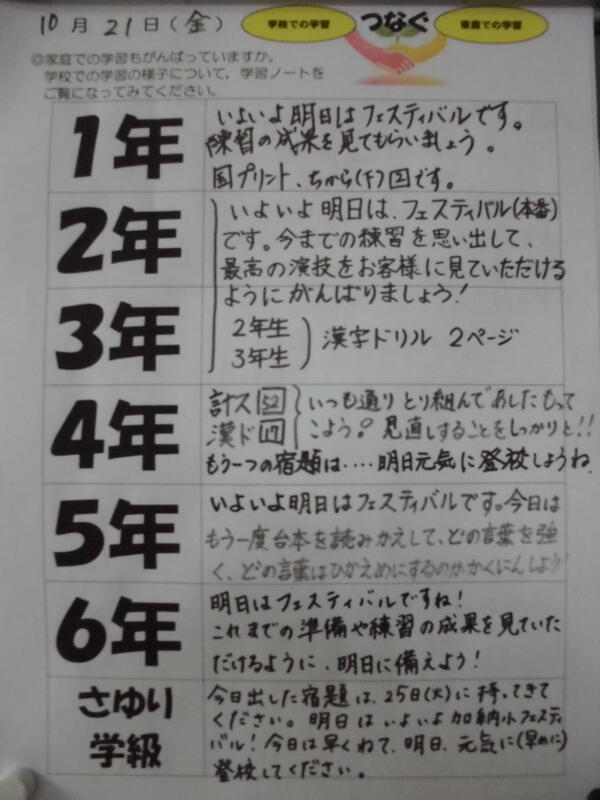 10月21日(金)
学校での学習
つなぐ
家庭での学習
◎家庭での学習もがんばっていますか。
学校での学習の様子について、学習ノートを
ご覧になってみてください。
1年
いよいよ明日はフェスティバルです。
練習の成果を見てもらいましょう。
国プリント、ちから(下)国です。
2年
いよいよ明日は、フェスティバル(本番)
です。今までの練習を思い出して、
最高の演技をお客様に見ていただける
ようにがんばりましょう!
3年
2年生
3年生
漢字ドリル 2ページ
4年
計ス52
漢ド
いつも通りとり組んであしたもって
こよう。見直しすることをしっかりと!!
もう一つの宿題は・・・・明日元気に登校しようね。
5年
いよいよ明日はフェスティバルです。今日は
もう一度台本を読みかえして、どの言葉を強
く、どの言葉はひかえめにするのかかくにんしよう!
6年
明日はフェスティバルですね!
これまでの準備や練習の成果を見ていた
だけるように、明日に備えよう!
さゆり
学級
今日出した宿題は、25日(火)に持ってきて
ください。明日はいよいよ加納小フェスティ
バル!今日は早くねて、明日、元気に(早めに)
登校してください。